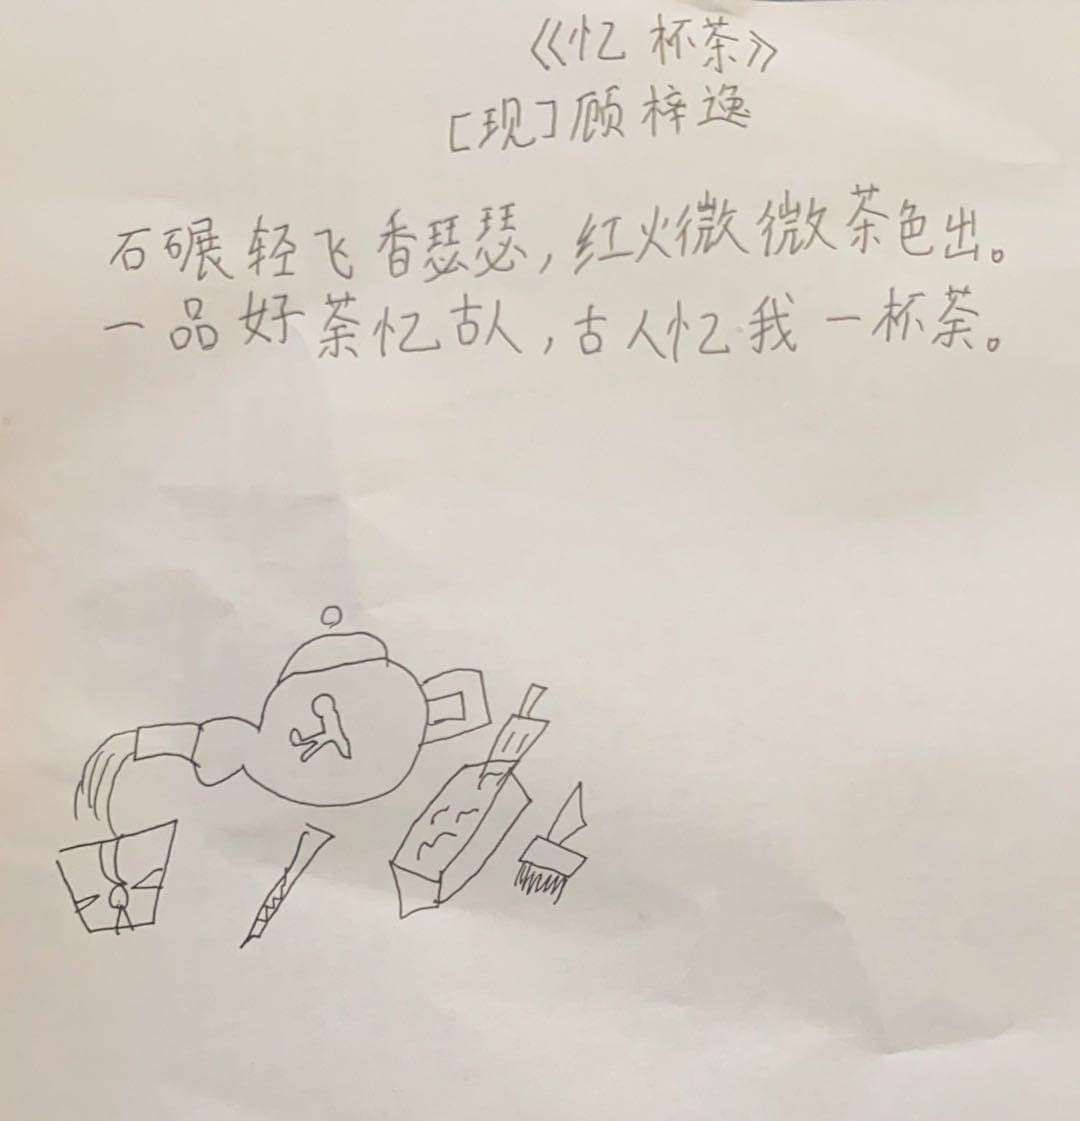 《忆杯茶》
[现]顾梓逸
石碾轻飞香瑟瑟,红火微微茶色出。
一品好茶忆古人,古人忆我一杯茶。